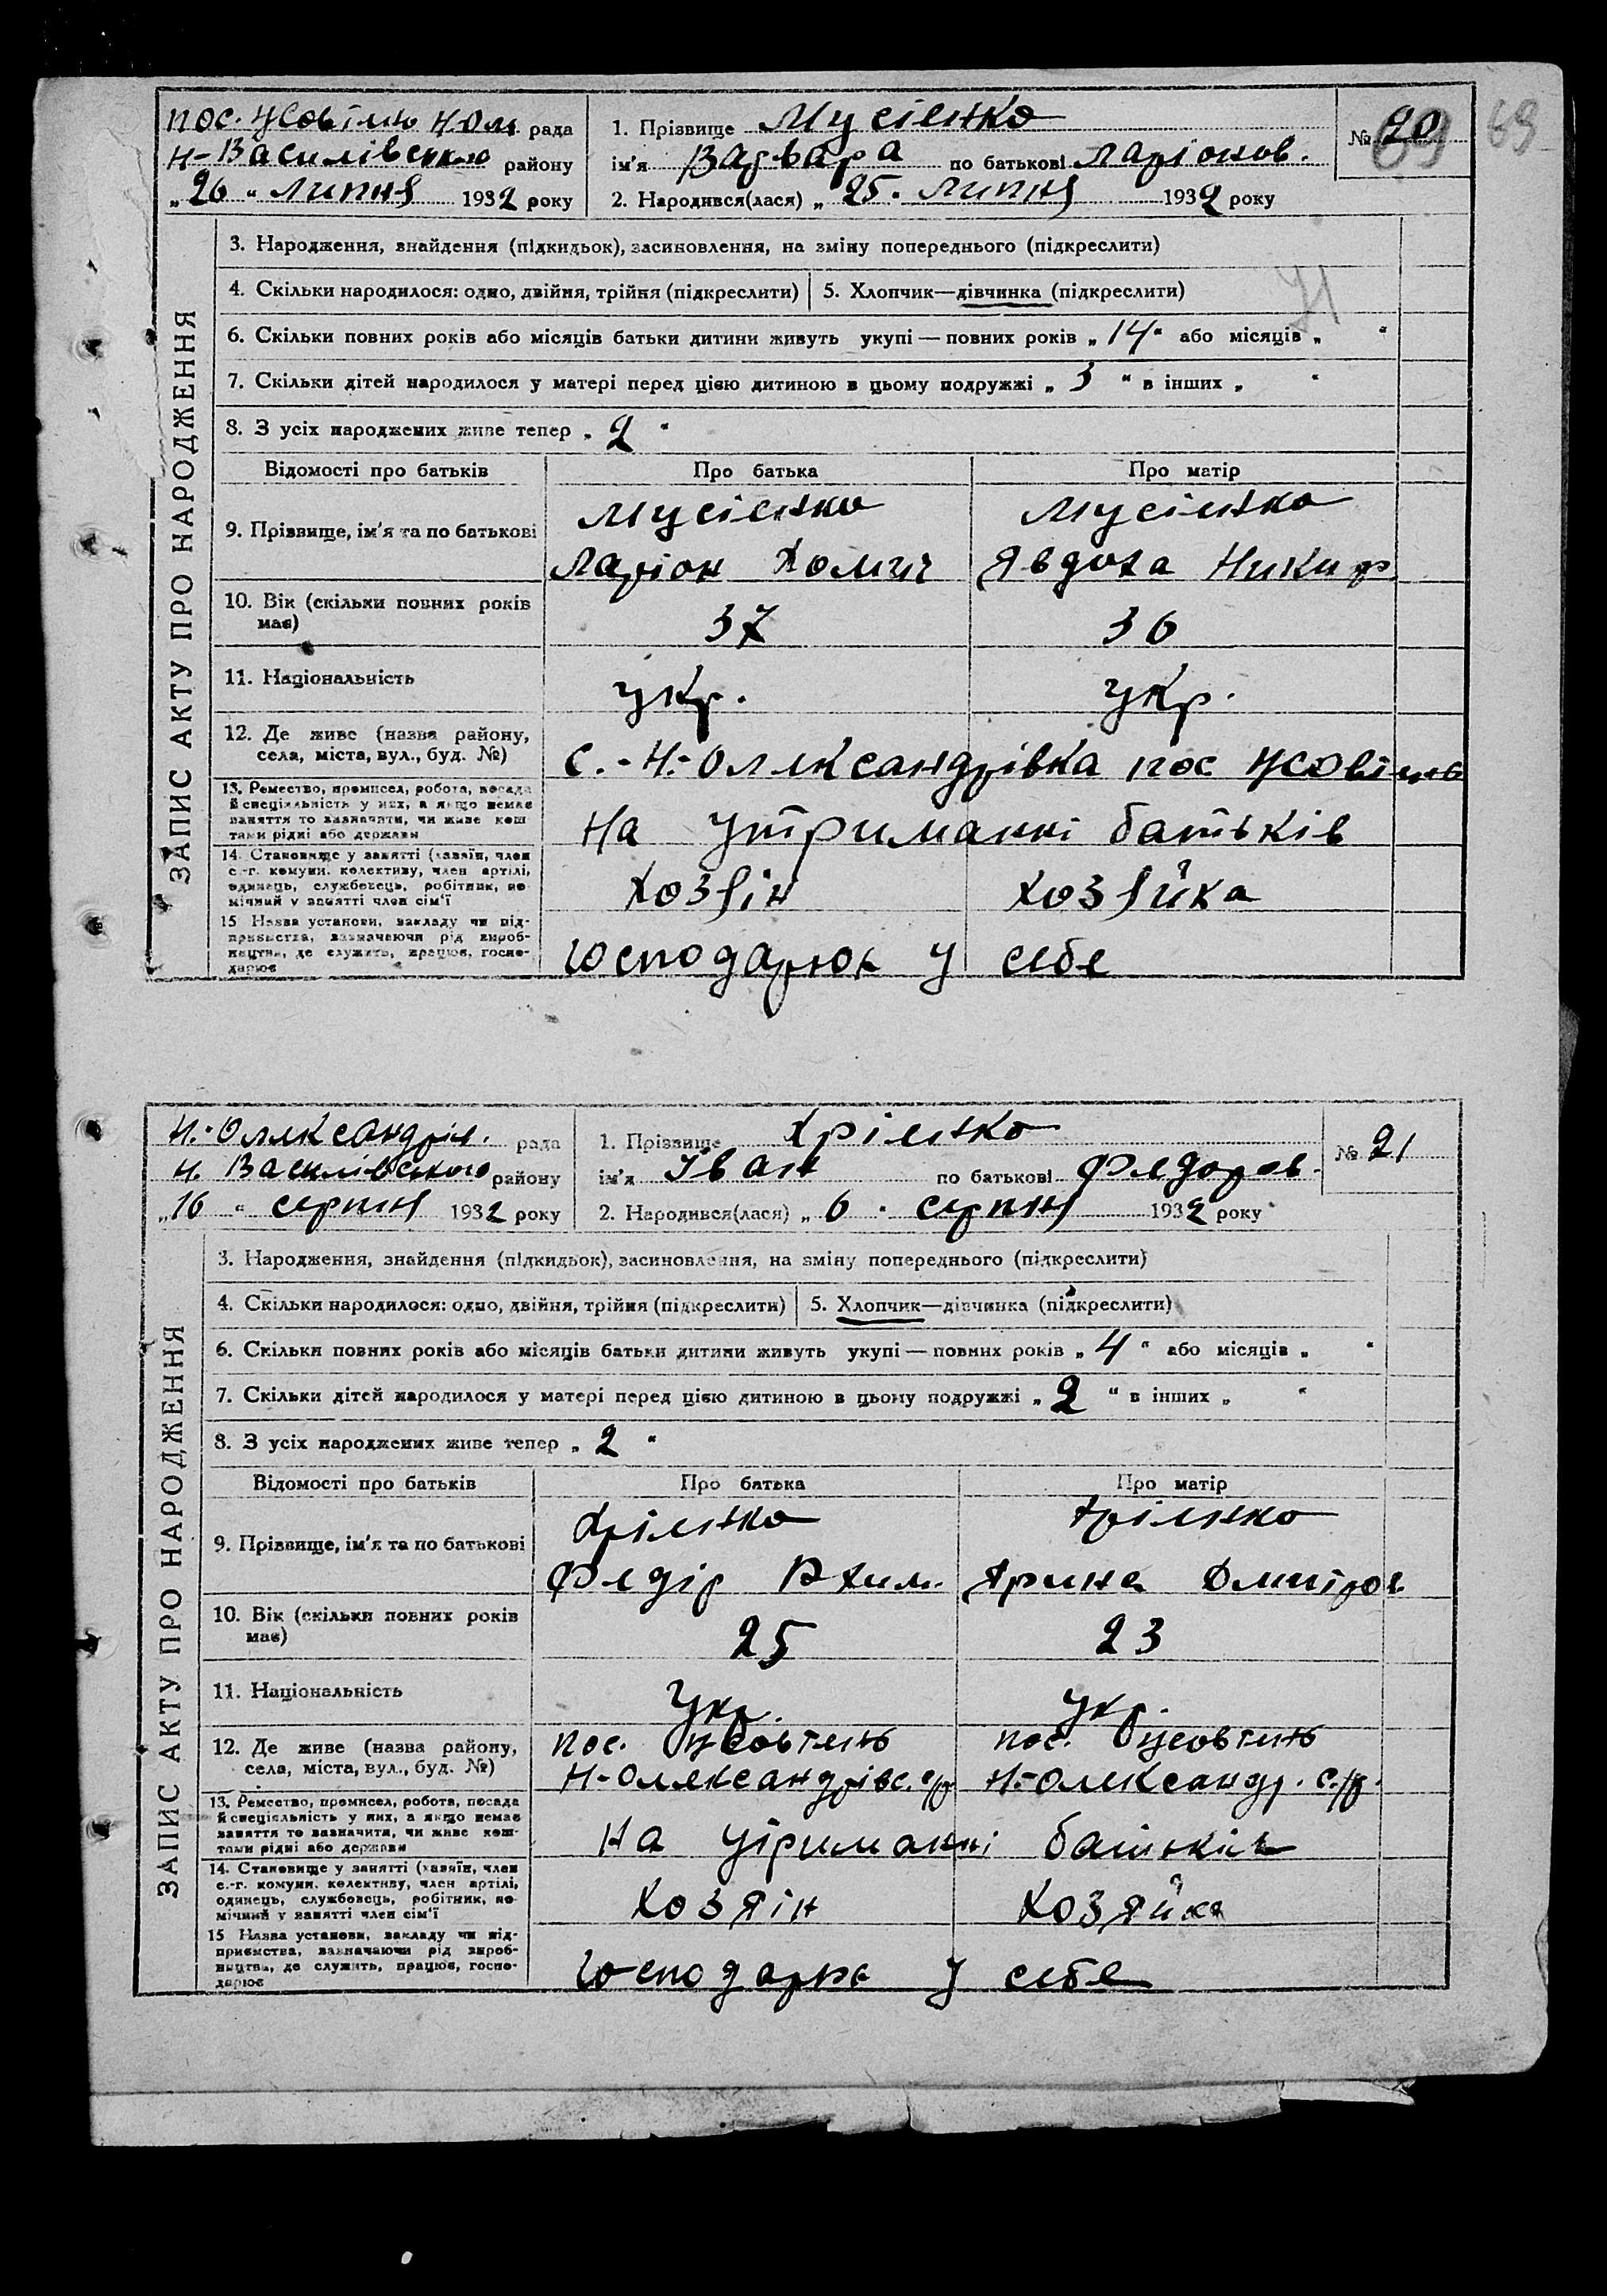 69
пос. Жовтень Н Ол рада
Н-Василівського району
„26 “ Липня 1932 року
1. Прізвище Мусієнко
ім'я Варвара по батькові Ларіонов.
2. Народився(лася) „ 25. Липня 1932 року
№ 20
69
ЗАПИС АКТУ ПРО НАРОДЖЕННЯ
3. Народження, знайдення (підкидьок), засиновлення, на зміну попереднього (підкреслити)
4. Скільки народилося: одно, двійня, трійня (підкреслити) 5. Хлопчик—дівчинка (підкреслити)
6. Скільки повних років або місяців батьки дитини живуть укупі — повних років „ 14 “ або місяців „ “
7. Скільки дітей народилося у матері перед цією дитиною в цьому подружжі „ 3 “ в інших „ “
8. З усіх народжених живе тепер „ 2 “
Відомості про батьків Про батька Про матір
9. Прізвище, ім'я та по батькові
Мусієнко Мусієнко
Ларіон Хомич Явдоха Никиф
10. Вік (скільки повних років має) 37 36
11. Національність укр. укр.
12. Де живе (назва району, села, міста, вул., буд. №)
с.-Н.-Олександрівка пос Жовтень
13. Ремество, промисел, робота, посада й спеціяльність у них, а якщо немає заняття то зазначити, чи живе коштами рідні або держави
На утриманні батьків
14. Становище у занятті (хазяїн, член с.-г. комуни, колективу, член артілі, одинець, службовець, робітник, помічний у занятті член сім'ї
хозяін хозяйка
15 Назва установи, закладу чи підприємства, зазначаючи рід виробництва, де служить, працює, господарює
господарюе у себе
Н.-Олександрів. рада
Н. Василівського району
„16 “ серпня 1932 року
1. Прізвище Хрієнко
ім'я Іван по батькові Федоров.
2. Народився(лася) „ 6 . серпня 1932 року
№ 21
ЗАПИС АКТУ ПРО НАРОДЖЕННЯ
3. Народження, знайдення (підкидьок), засиновлення, на зміну попереднього (підкреслити)
4. Скільки народилося: одно, двійня, трійня (підкреслити) 5. Хлопчик—дівчинка (підкреслити)
6. Скільки повних років або місяців батьки дитини живуть укупі — повних років „ 4 “ або місяців „ “
7. Скільки дітей народилося у матері перед цією дитиною в цьому подружжі „ 2 “ в інших „ “
8. З усіх народжених живе тепер „ 2 “
Відомості про батьків Про батька Про матір
9. Прізвище, ім'я та по батькові
Хрієнко Хрієнко
Федір Яхим. Ярина Дмитров
10. Вік (скільки повних років має) 25 23
11. Національність Укр. укр.
12. Де живе (назва району, села, міста, вул., буд. №)
пос. Жовтень пос. Жовтень
Н-Олександрівс. с/р Н.-Олександр. с./р.
13. Ремество, промисел, робота, посада й спеціяльність у них, а якщо немає заняття то зазначити, чи живе коштами рідні або держави
На утриманні батьків
14. Становище у занятті (хазяїн, член с.-г. комуни, колективу, член артілі, одинець, службовець, робітник, помічний у занятті член сім'ї
Хозяін Хозяйка
15 Назва установи, закладу чи підприємства, зазначаючи рід виробництва, де служить, працює, господарює
господарює у себе